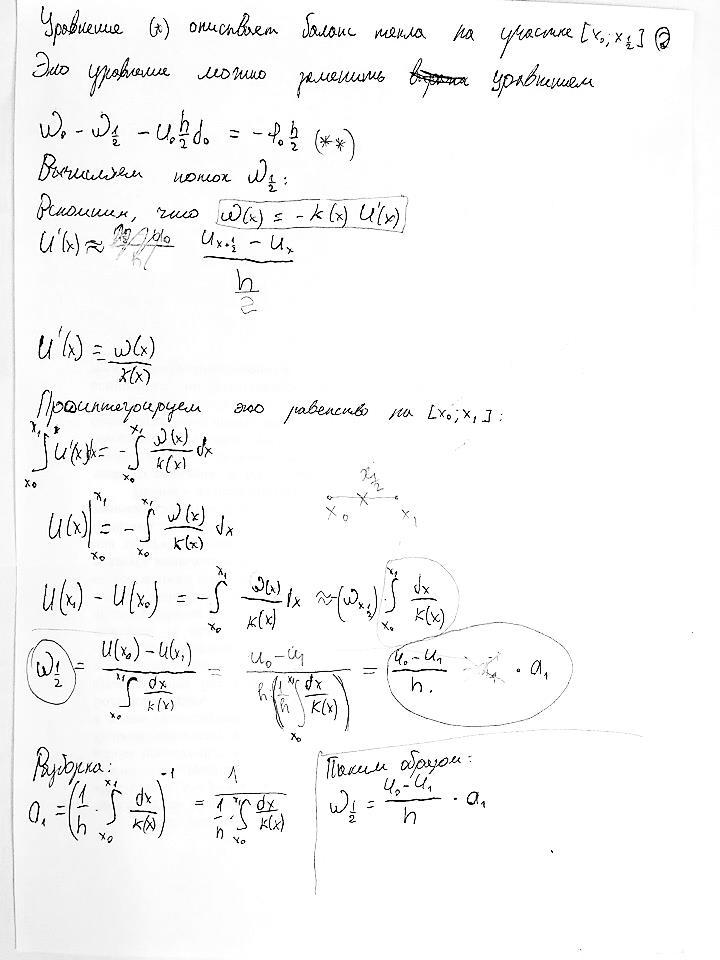 Уравнение (*) описывает баланс тепла на участке [x₀; x_{1/2}] ②
Это уравнение можно заменить уравнением
ω₀ - ω_{1/2} - u₀ h/2 d₀ = - f₀ h/2 (**)
Вычисляем поток ω_{1/2}:
Вспомним, что ω(x) = - k(x) U'(x)
U'(x) ≈ (U_{x+1/2} - U_x) / (h/2)
U'(x) = ω(x)/k(x)
Проинтегрируем это равенство на [x₀; x₁]:
∫_{x₀}^{x₁} U'(x)dx = - ∫_{x₀}^{x₁} ω(x)/k(x) dx
x_{1/2}
x₀ x₁
U(x)|_{x₀}^{x₁} = - ∫_{x₀}^{x₁} ω(x)/k(x) dx
U(x₁) - U(x₀) = - ∫_{x₀}^{x₁} ω(x)/k(x) dx ≈ -(ω_{x_{1/2}}) ∫_{x₀}^{x₁} dx/k(x)
ω_{1/2} = (U(x₀) - U(x₁)) / ∫_{x₀}^{x₁} dx/k(x) = (u₀ - u₁) / (h·(1/h ∫_{x₀}^{x₁} dx/k(x))) = (u₀ - u₁)/h · a₁
a₁ = (1/h · ∫_{x₀}^{x₁} dx/k(x))^{-1} = 1 / (1/h · ∫_{x₀}^{x₁} dx/k(x))
Таким образом:
ω_{1/2} = (u₀ - u₁)/h · a₁